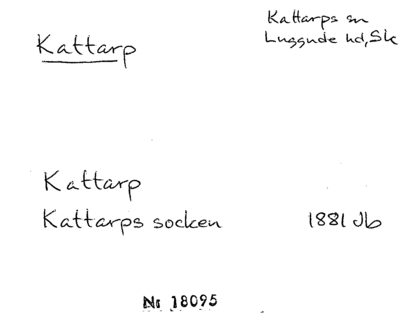 Kattarp
Kattarps sn
Luggude hd, Sk
Kattarp
Kattarps socken 1881 Jb
Nr 18095